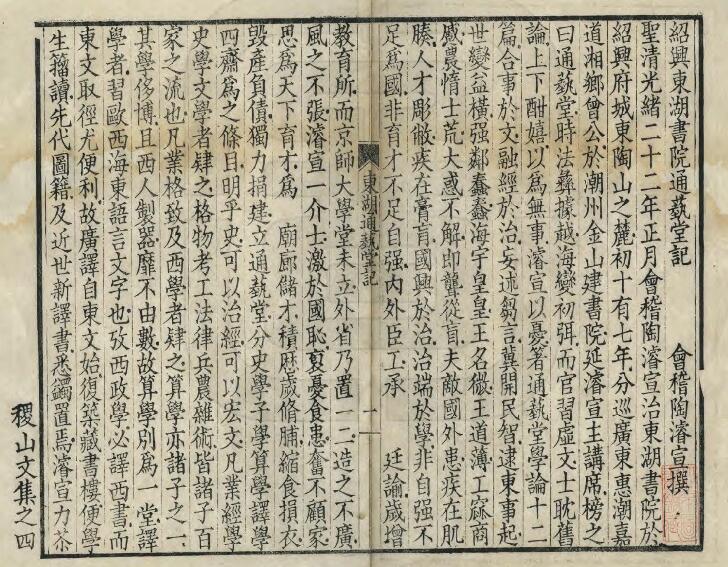 紹興東湖書院通藝堂記　會稽陶濬宣撰
聖清光緒二十二年正月會稽陶濬宣治東湖書院於
紹興府城東陶山之麓初十有七年分巡廣東惠潮嘉
道湘鄉曾公於潮州金山建書院延濬宣主講席榜之
曰通藝堂時法彝據越海變初弭而官習虛文士耽舊
論上下酣嬉以為無事濬宣以憂著通藝堂學論十二
篇合事於文融經於治妄述芻言冀開民智逮東事起
世變益橫强鄰蠢蠢海宇皇皇王名微王道薄工窳商
慼農惰士荒大惑不解即聾從盲夫敵國外患疾在肌
腠人才彫敝疾在膏肓國興於治治端於學非自强不
足為國非育才不足自强內外臣工承　廷諭歲增
東湖通藝堂記
一
教育所而京師大學堂未立外省乃置一二造之不廣
風之不張濬宣一介士激於國恥寖憂食患奮不顧家
思為天下育才為　廟廊儲才積歷歲脩脯縮食損衣
毀產負債獨力捐建立通藝堂分史學子學算學譯學
四齋為之條目明乎史可以治經可以宏文凡業經學
史學文學者肄之格物考工法律兵農雜術皆諸子百
家之流也凡業格致及西學者肄之算學亦諸子之一
其學侈博且西人製器靡不由數故算學別為一堂譯
學者習歐西海東語言文字也攷西政學必譯西書而
東文取徑尤便利故廣譯自東文始復築藏書樓便學
生籀讀先代圖籍及近世新譯書悉蠲置焉濬宣力苶
稷山文集之四